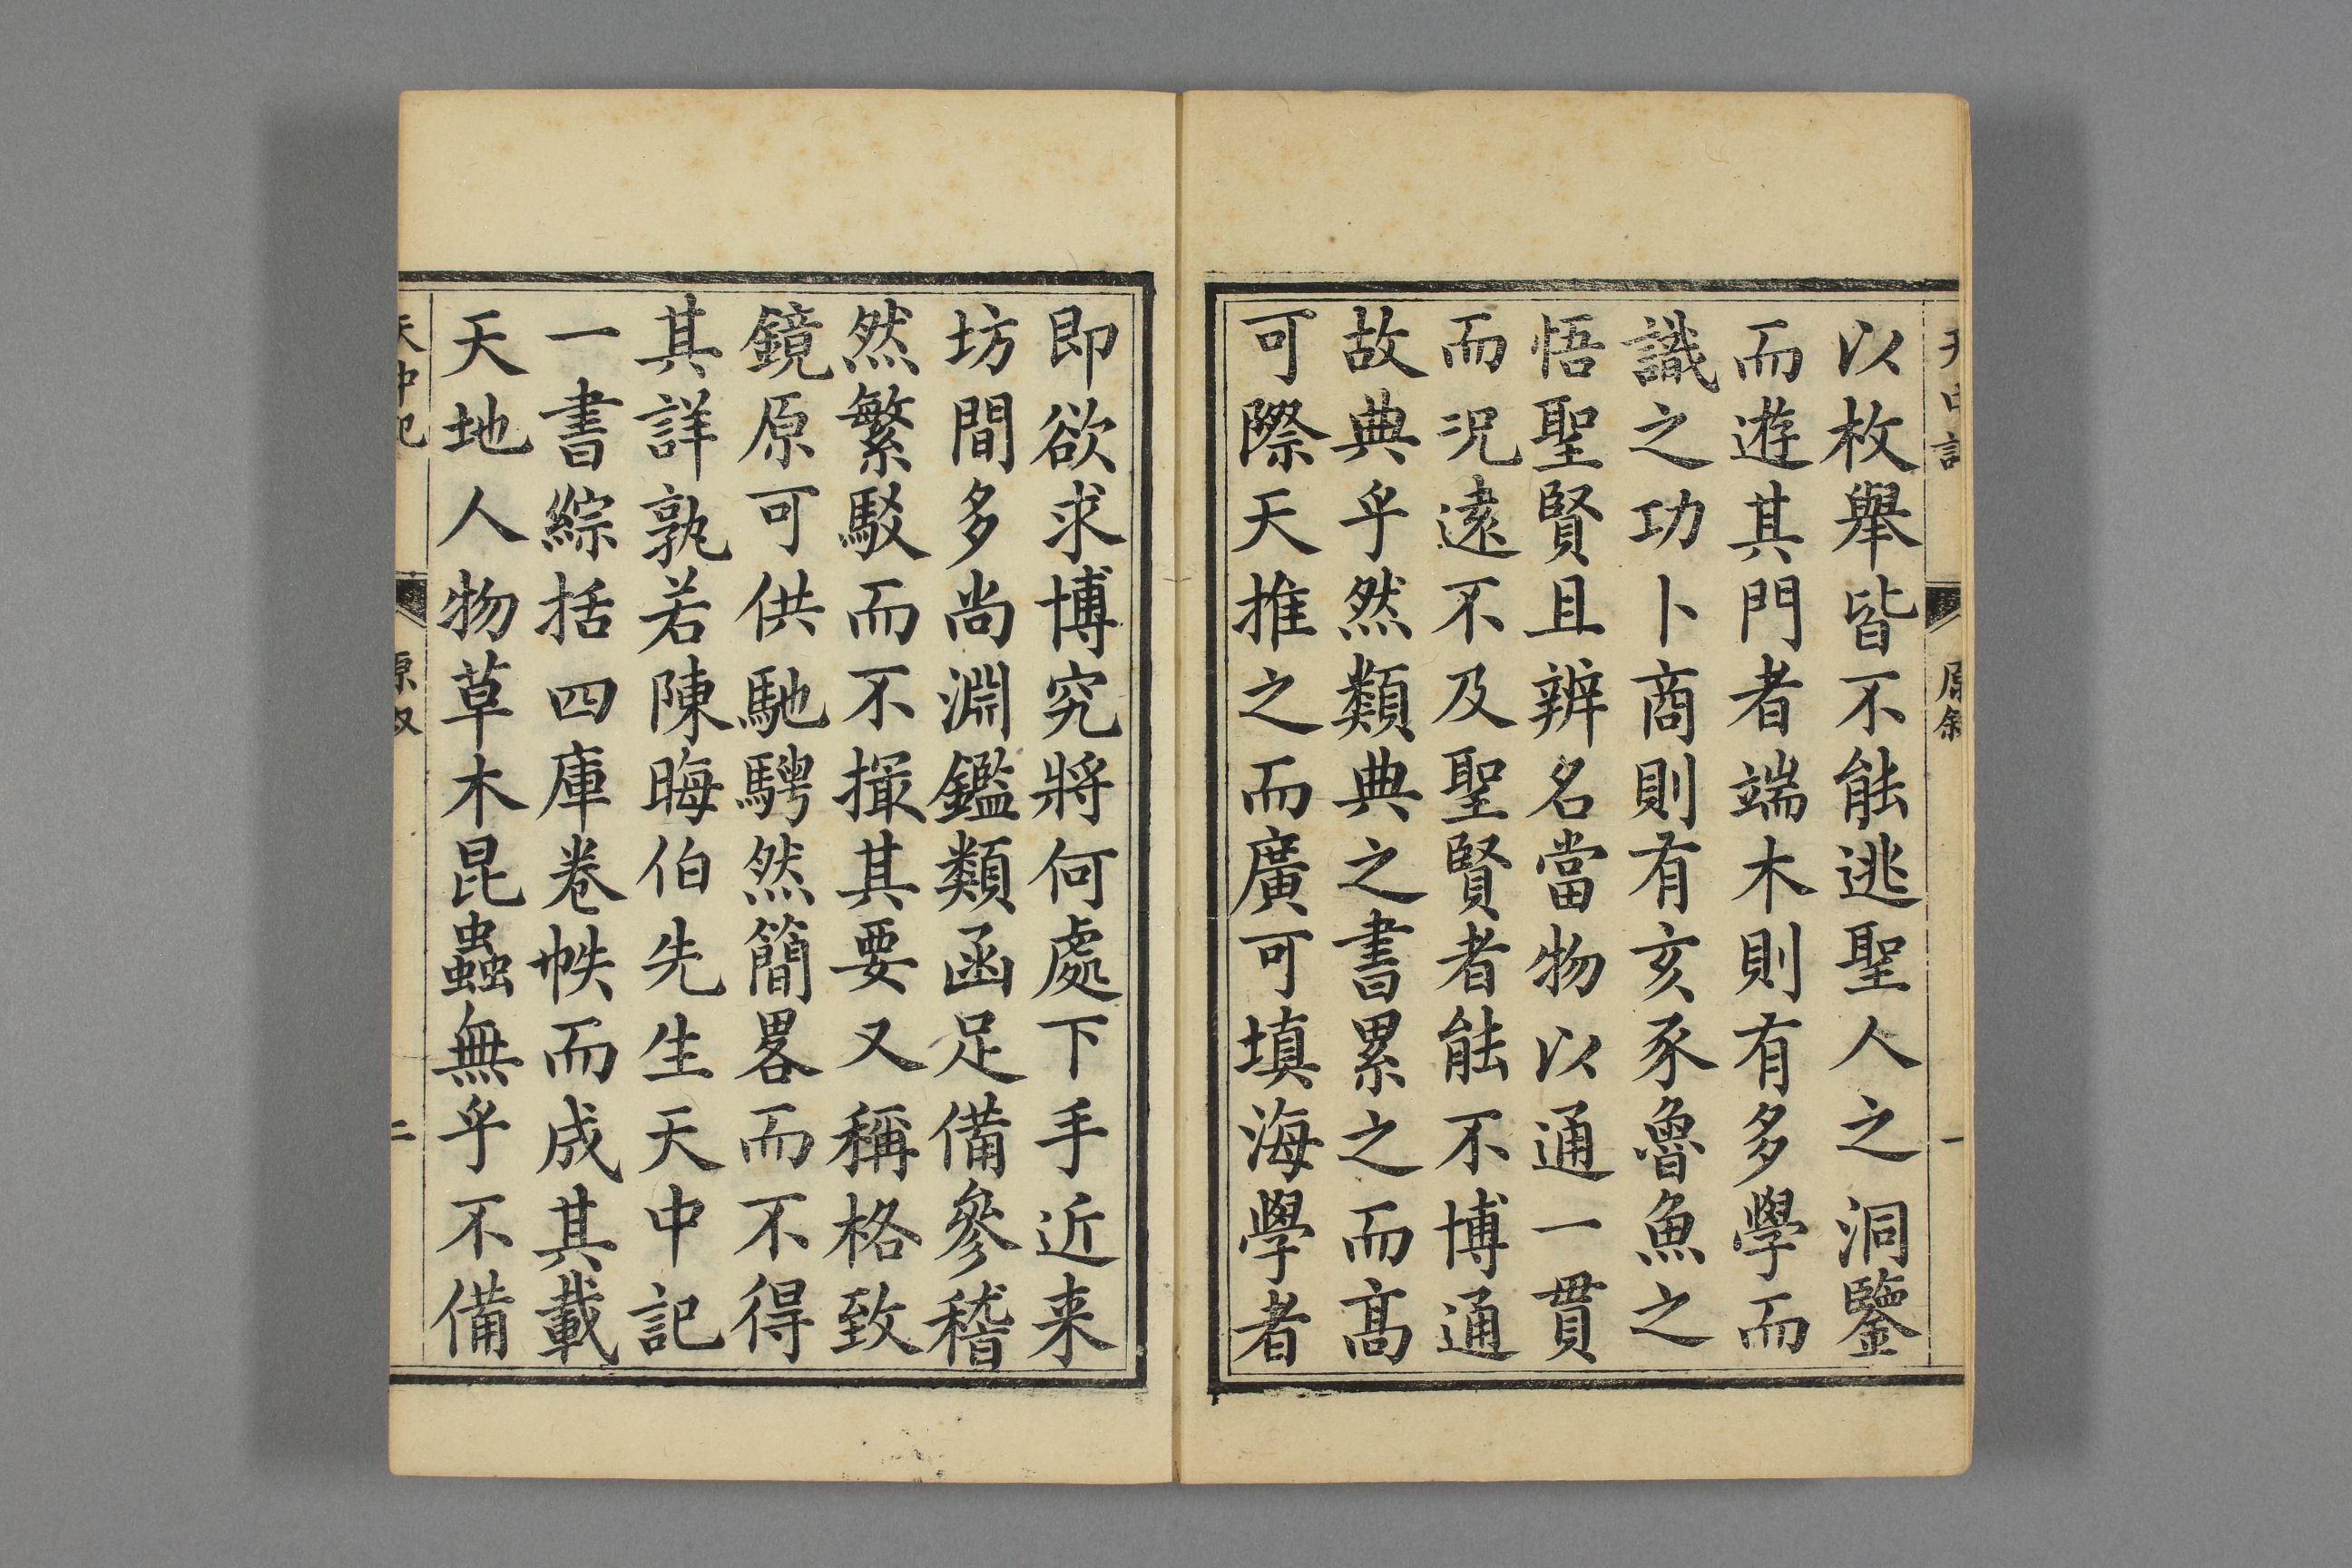 天中記
原敘
一
以枚舉皆不能逃聖人之洞鑒
而遊其門者端木則有多學而
識之功卜商則有亥豕魯魚之
悟聖賢且辨名當物以通一貫
而況遠不及聖賢者能不博通
故典乎然類典之書累之而高
可際天推之而廣可填海學者
即欲求博究將何處下手近来
坊間多尚淵鑑類函足備參稽
然繁駁而不撮其要又稱格致
鏡原可供馳騁然簡畧而不得
其詳孰若陳晦伯先生天中記
一書綜括四庫卷帙而成其載
天地人物草木昆蟲無乎不備
天中記
原敘
二